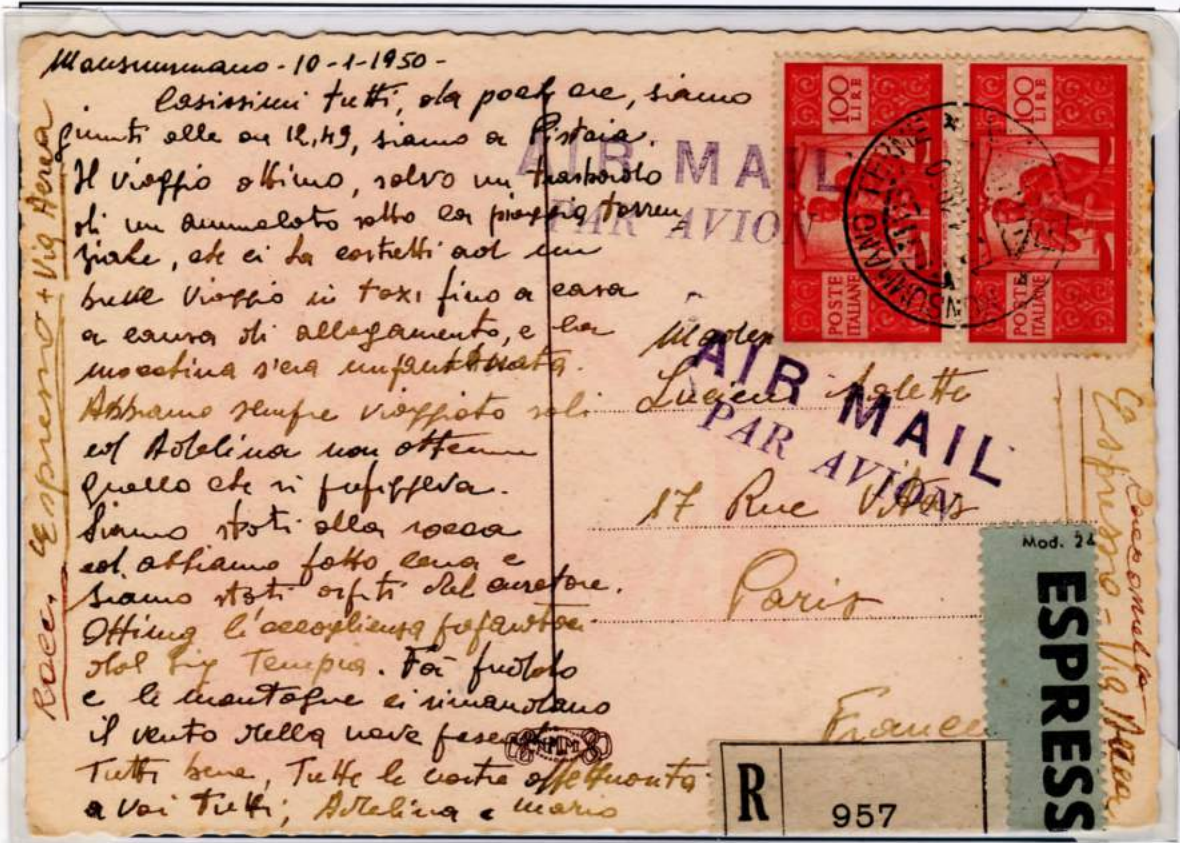 Monsummano - 10-1-1950 -
Carissimi tutti, da poche ore, siamo
giunti alle ore 12,49, siamo a Pistoia.
Il viaggio ottimo, salvo un trasbordo
di un ammalato sotto la pioggia torren
ziale, che ci ha costretti ad un
breve viaggio in taxi fino a casa
a causa di allagamento, e la
macchina s'era
Abbiamo sempre viaggiato soli
ed Adelina non ottenne
quello che si prefiggeva.
Siamo stati alla rocca
ed abbiamo fatto cena e
siamo stati ospiti del curatore.
Ottima l'accoglienza
dal Sig Tempia. Fa freddo
e le montagne ci rimandano
il vento della neve
Tutti bene, Tutte le vostre
a voi Tutti; Adelina e Mario
Racc. Espresso + Via Aerea
AIR MAIL
PAR AVION
AIR MAIL
PAR AVION
100
LIRE
POSTE
ITALIANE
100
LIRE
POSTE
ITALIANE
MONSUMMANO TERME
Lucien Arlette
17 Rue
Paris
France
Raccomandata
Espresso - Via Aerea
Mod. 24
ESPRESS
R
957